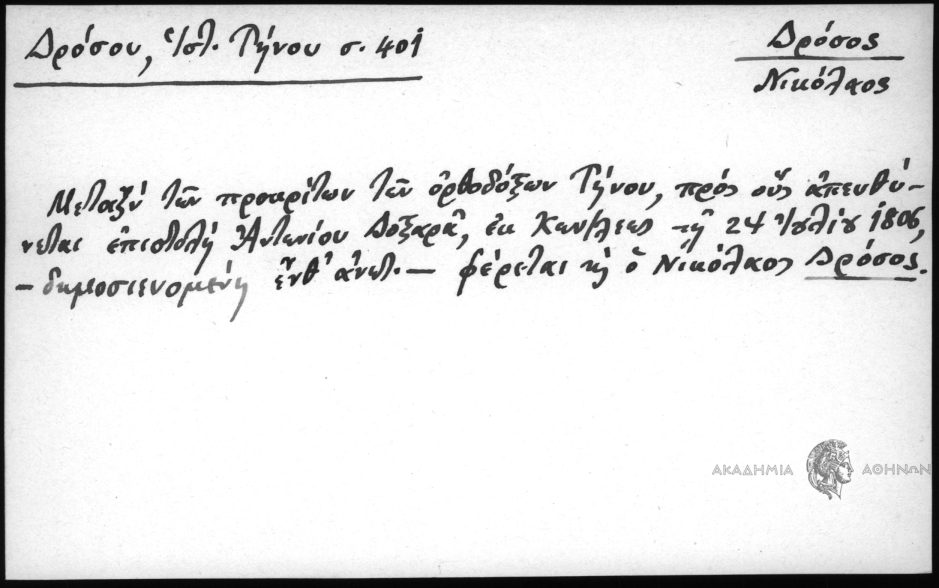 Δρόσου, Ἱστ. Τήνου σ. 401
Δρόσος
Νικόλαος
Μεταξὺ τῶν προκρίτων τῶν ὀρθοδόξων Τήνου, πρὸς οὓς ἀπευθύ-
νεται ἐπιστολὴ Ἀντωνίου Δοξαρᾶ, ἐκ Κων/λεως τῇ 24 Ἰουλίου 1806,
– δημοσιευομένη ἔνθ' ἀνωτ. – φέρεται κὴ ὁ Νικόλαος Δρόσος.
ΑΚΑΔΗΜΙΑ ΑΘΗΝΩΝ